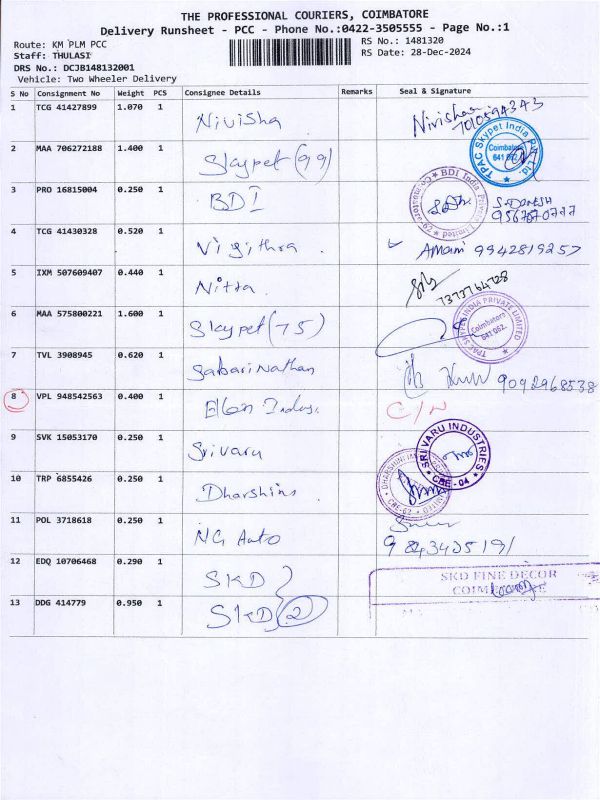 THE PROFESSIONAL COURIERS, COIMBATORE
Delivery Runsheet - PCC - Phone No.:0422-3505555 - Page No.:1
Route: KM PLM PCC
Staff: THULASI
DRS No.: DCJB148132001
Vehicle: Two Wheeler Delivery
RS No.: 1481320
RS Date: 28-Dec-2024
S No Consignment No Weight PCS Consignee Details Remarks Seal & Signature
1 TCG 41427899 1.070 1 Nivisha Nivisha
2 MAA 706272188 1.400 1 Skypet (99) TPAC Skypet India Pvt. Ltd. Coimbatore 641 062
3 PRO 16815004 0.250 1 BDI BDI India Private Limited
4 TCG 41430328 0.520 1 ✓ 9942819257
5 IXM 507609407 0.440 1 7373764728
6 MAA 575800221 1.600 1 Skypet (75) TPAC SKYPET INDIA PRIVATE LIMITED Coimbatore 641 062.
7 TVL 3908945 0.620 1 Sabari Nathan 9092968538
8 VPL 948542563 0.400 1 C/N
9 SVK 15053170 0.250 1 Srivaru SRI VARU INDUSTRIES CBE - 04
10 TRP 6855426 0.250 1 Dharshini
11 POL 3718618 0.250 1 NG Auto 9843425191
12 EDQ 10706468 0.290 1 SKD SKD FINE DECOR
13 DDG 414779 0.950 1 SKD (2)